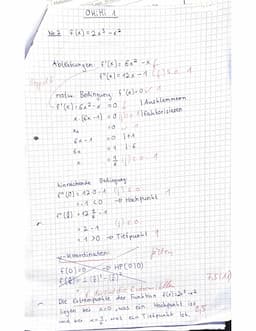 OHiMi 1
No.3 f(x) = 2x³ - x²
Ableitungen: f'(x) = 6x² - x
f''(x) = 12x - 1 (j) s.o. 1
notw. Bedingung: f'(x) = 0 ✓ 1
f'(x) = 6x² - x = 0 | Ausklammern
x · (6x - 1) = 0 | Faktorisieren
x₁ = 0
6x - 1 = 0 | +1
6x = 1 | :6
x = 1/6 (j) s.o. 1
hinreichende Bedingung
f''(0) = 12·0 - 1 (j) s.o. 1
= -1 < 0 → Hochpunkt
f''(1/6) = 12·1/6 - 1
= 2 - 1 (j) s.o.
= 1 > 0 → Tiefpunkt 1
x-Koordinaten:
f(0) = 0 → HP(0|0)
f(1/6) = 2·(1/6)³ - (1/6)²
7,5 (11)
Die Extrempunkte der Funktion f(x) = 2x³ - x²
liegen bei x = 0, was ein Hochpunkt ist,
und bei x = 1/6, was ein Tiefpunkt ist. 0,5